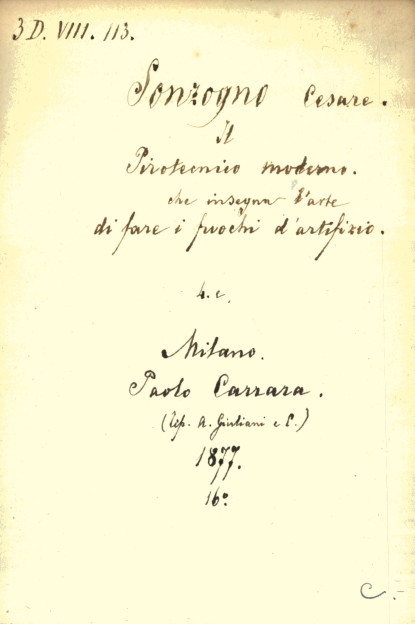 3 D. VIII. 113.
Sonzogno Cesare.
Il
Pirotecnico moderno.
che insegna l'arte
di fare i fuochi d'artifizio.
4. e.
Milano.
Paolo Carrara.
(Tip. A. Giuliani e C.)
1877.
16º
C.-